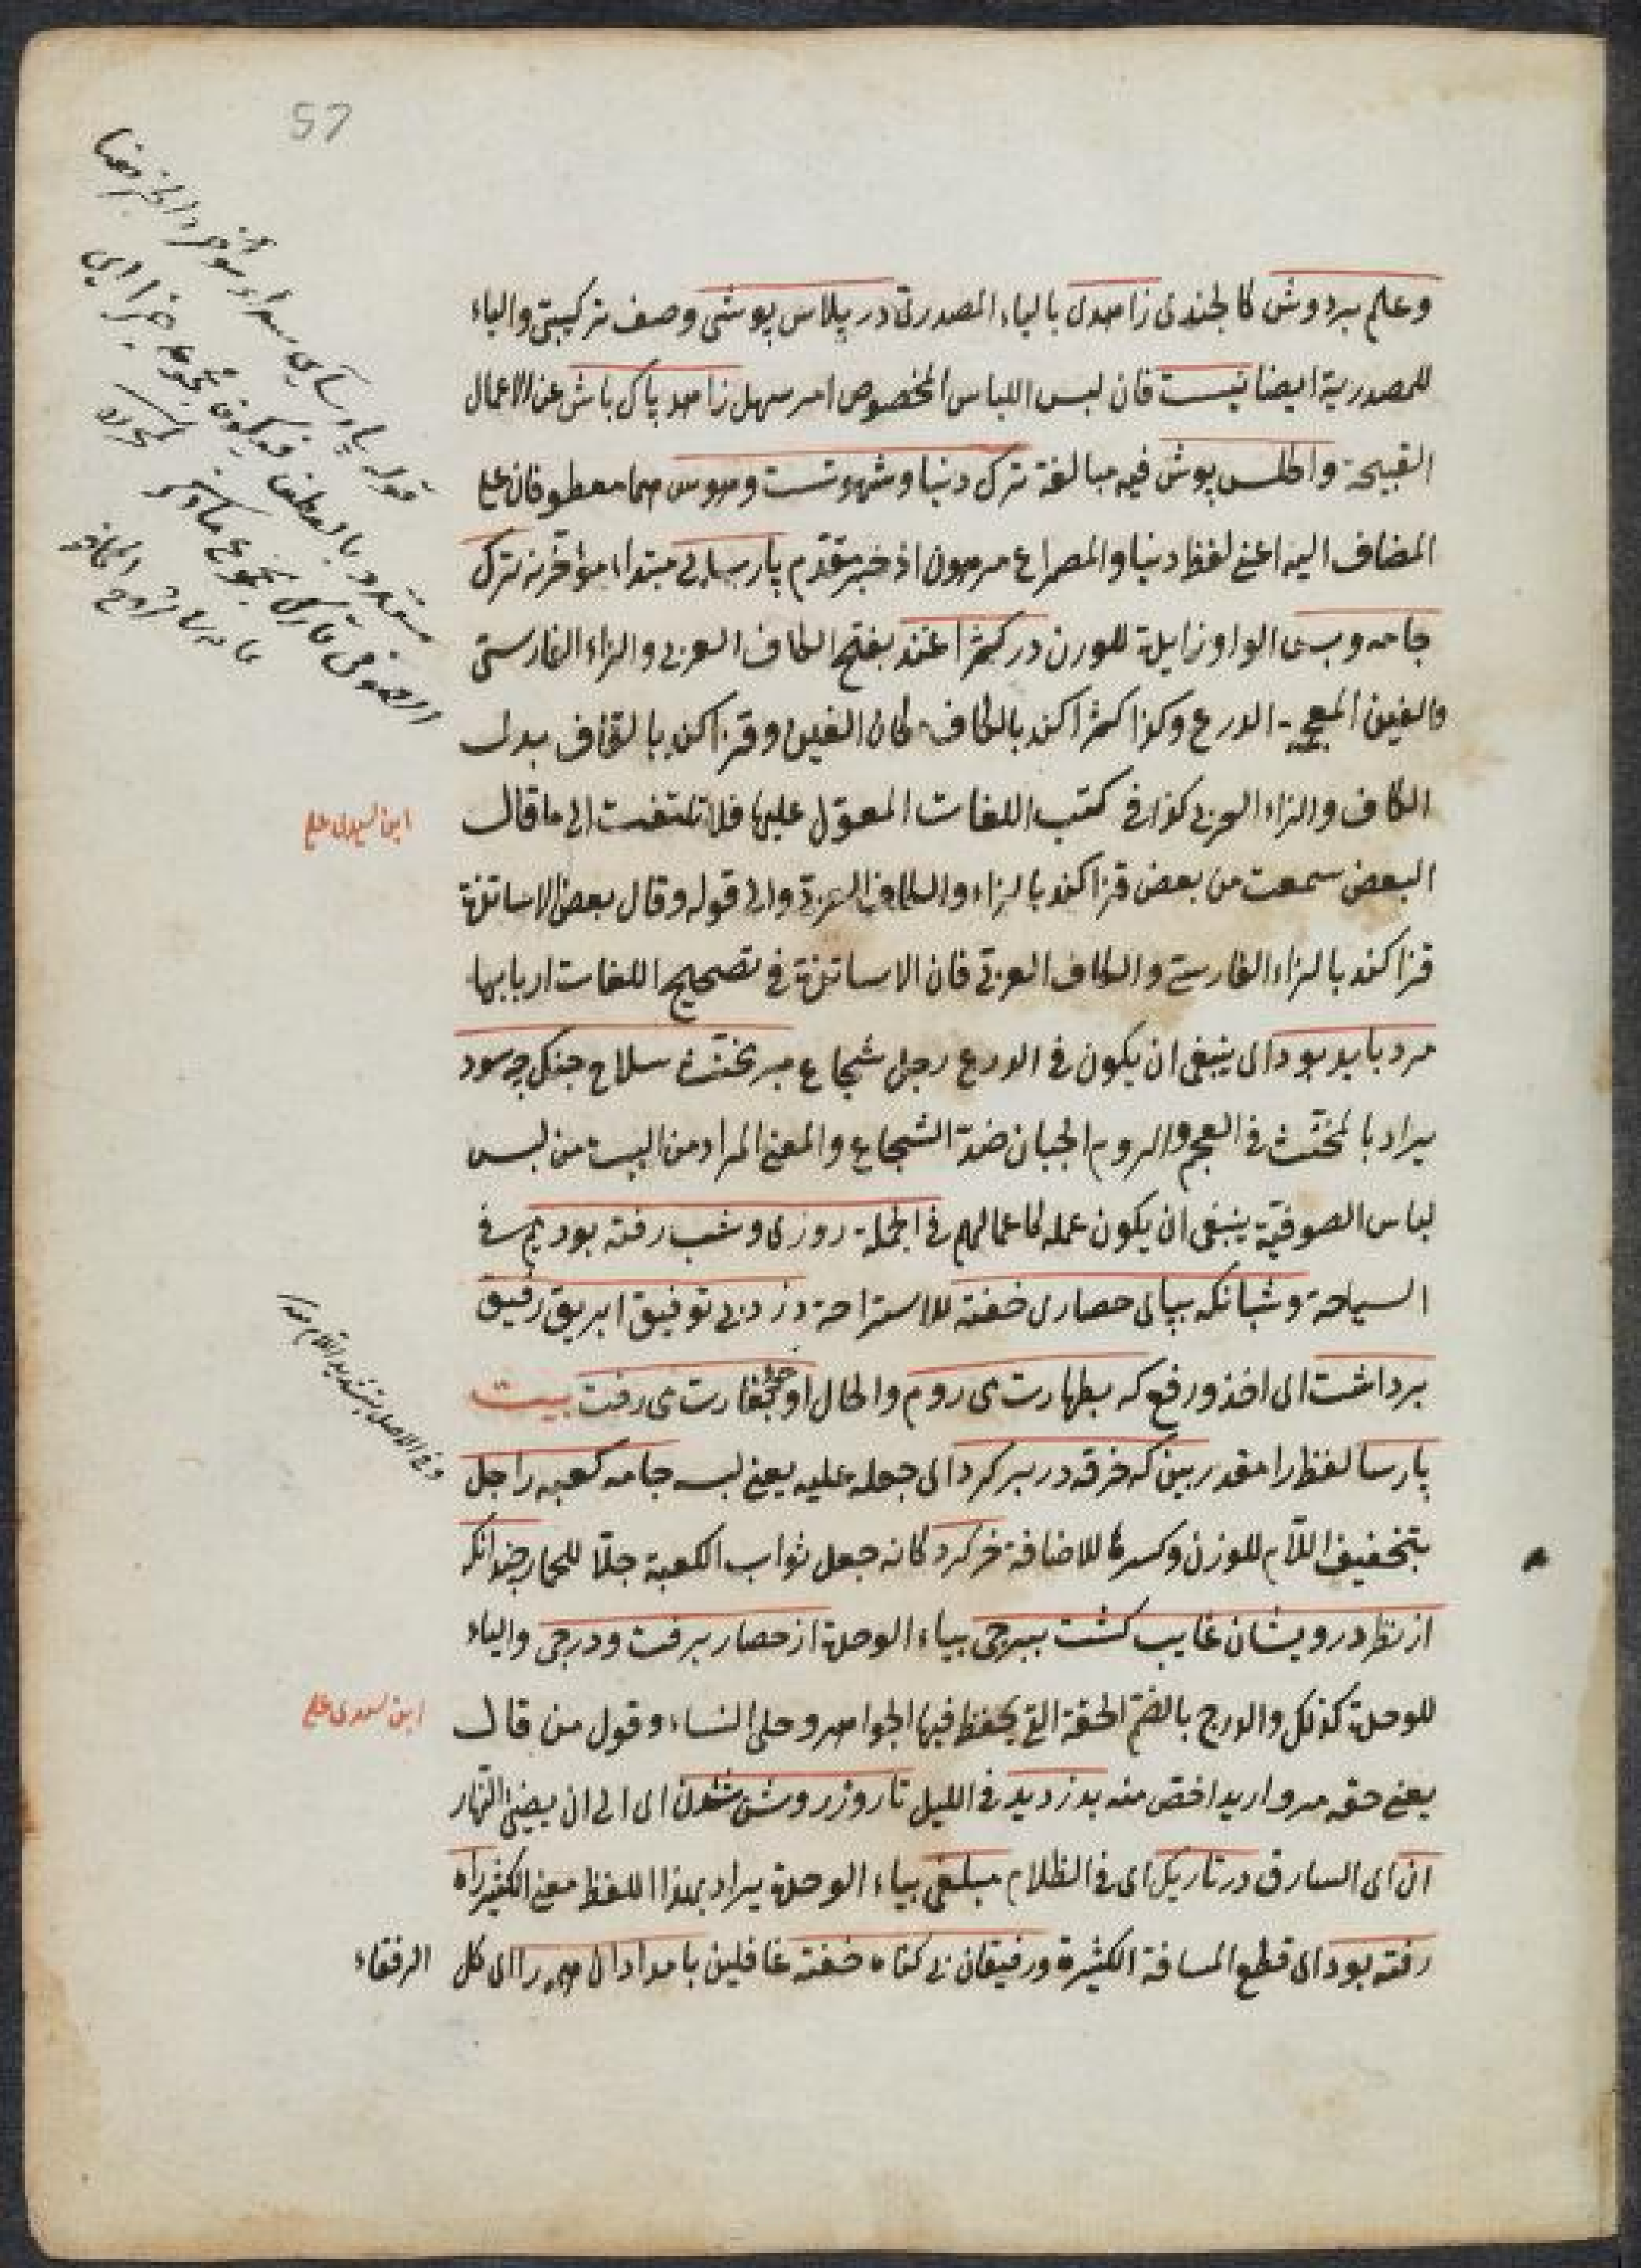 57
وعلم بردوش كالجندى زاهدى بالياء المصدرى در پلاس پوشى وصف تركيبى والياء
للمصدرية ايضا نيست فان لبس اللباس المخصوص امر سهل زاهد پاك باش عن الاعمال
القبيحة واطلس پوش فيه مبالغة ترك دنيا وشهوتست وهوس هما معطوفان على
المضاف اليه اعنى لفظ دنيا والمصراع مرهون اذ خبر مقدم پارسايى مبتداء مؤخر نه ترك
جامه وبس الواو زايدة للوزن در كژاغند بفتح الكاف العربى والزاء الفارسى
والغين المعجمة الدرع وكذا كژاكند بالكاف مكان الغين وقزاكند بالقاف بدل
الكاف والزاء العربى كذا فى كتب اللغات المعول عليها فلا تلتفت الى ما قال
ابن السيدى على
البعض سمعت من بعض قزاكند بالزاء والكاف العربى والى قوله وقال بعض الاساتذة
قزاكند بالزاء الفارسى والكاف العربى فان الاساتذة فى تصحيح اللغات اربابها
مرد بايد بود اى ينبغى ان يكون فى الدرع رجل شجاع بر مخنث سلاح جنك چه سود
يراد بالمخنث فى العجم والروم الجبان ضد الشجاع والمعنى المراد من البيت من لبس
لباس الصوفية ينبغى ان يكون عمله كاعمالهم فى الجملة روزى وشب رفته بوديم فى
السياحة وشبانكه بپاى حصارى خفته للاستراحة دزد بى توفيق ابريق رفيق
برداشت اى اخذ ورفع كه بطهارت مى روم والحال او بغارت مى رفت بيت
پارسا لفظ را مقدر بين كه خرقه در بر كرد اى جعله عليه يعنى لبسه جامه كعبه را جل
وفى الاصل بتشديد اللام منه
بتخفيف اللام للوزن وكسرها للاضافة خر كرد كانه جعل ثواب الكعبة جلا للحمار چندانكه
از نظر درويشان غايب كشت ببرجى بياء الوحدة از حصار برفت ودرجى والياء
للوحدة كذلك والدرج بالضم الحقة التى يحفظ فيها الجواهر وحلى النساء وقول من قال
ابن السيدى على
يعنى حقه مرواريد اخص منه بدزديد فى الليل تا روز روشن شدن اى الى ان يضئ النهار
ان اى السارق در تاريكى اى فى الظلام مبلغى بياء الوحدة يراد بهذا اللفظ معنى الكثير راه
رفته بود اى قطع المسافة الكثيرة ورفيقان بى كناه خفته غافلين بامدادان همه را اى كل
الرفقاء